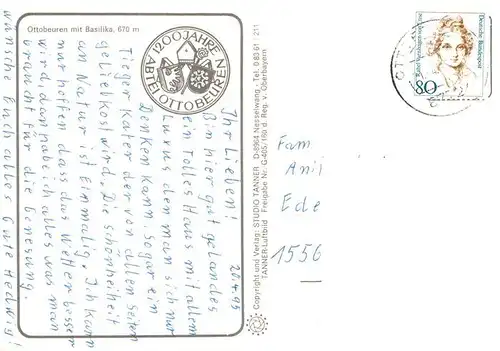 Ottobeuren mit Basilika, 670 m
1200 JAHRE
ABTEI OTTOBEUREN
20.4.95
Ihr Lieben!
Bin hier gut gelandet
ein tolles Haus mit allem
Luxus den man sich nur
Denken kann. Sogar ein
Tieger Kater der von allen Seiten
geliebkost wird. Die schönheit
an Natur ist Einmalig. Ich kann
nur hoffen dass das Wetter besser
wird, dan hab ich alles was man
braucht für die Genesung.
wünsche Euch alles Gute Hedwig!
Copyright und Verlag: STUDIO TANNER D-8964 Nesselwang - Tel. 0 83 61 / 211
TANNER-Luftbild Freigabe Nr. d. Reg. v. Oberbayern
Deutsche Bundespost
Rahel Varnhagen von Ense
80
Fam.
Anil
Ede
1556